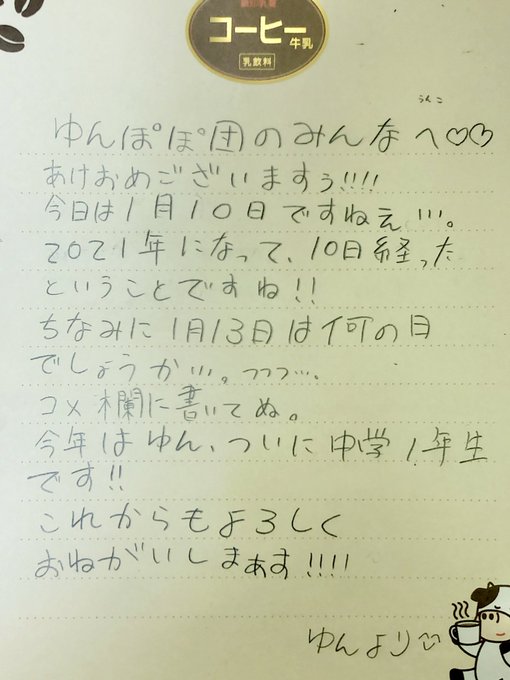 コーヒー
牛乳
乳飲料
うんこ
ゆんぽぽ団のみんなへ♡♡
あけおめございますぅ!!!!
今日は1月10日ですねぇ…。
2021年になって、10日経った
ということですね!!
ちなみに1月13日は何の日
でしょうか…。っっっ…。
コメ欄に書いてぬ。
今年はゆん、ついに中学1年生
です!!
これからもよろしく
おねがいしまぁす!!!!
ゆんより